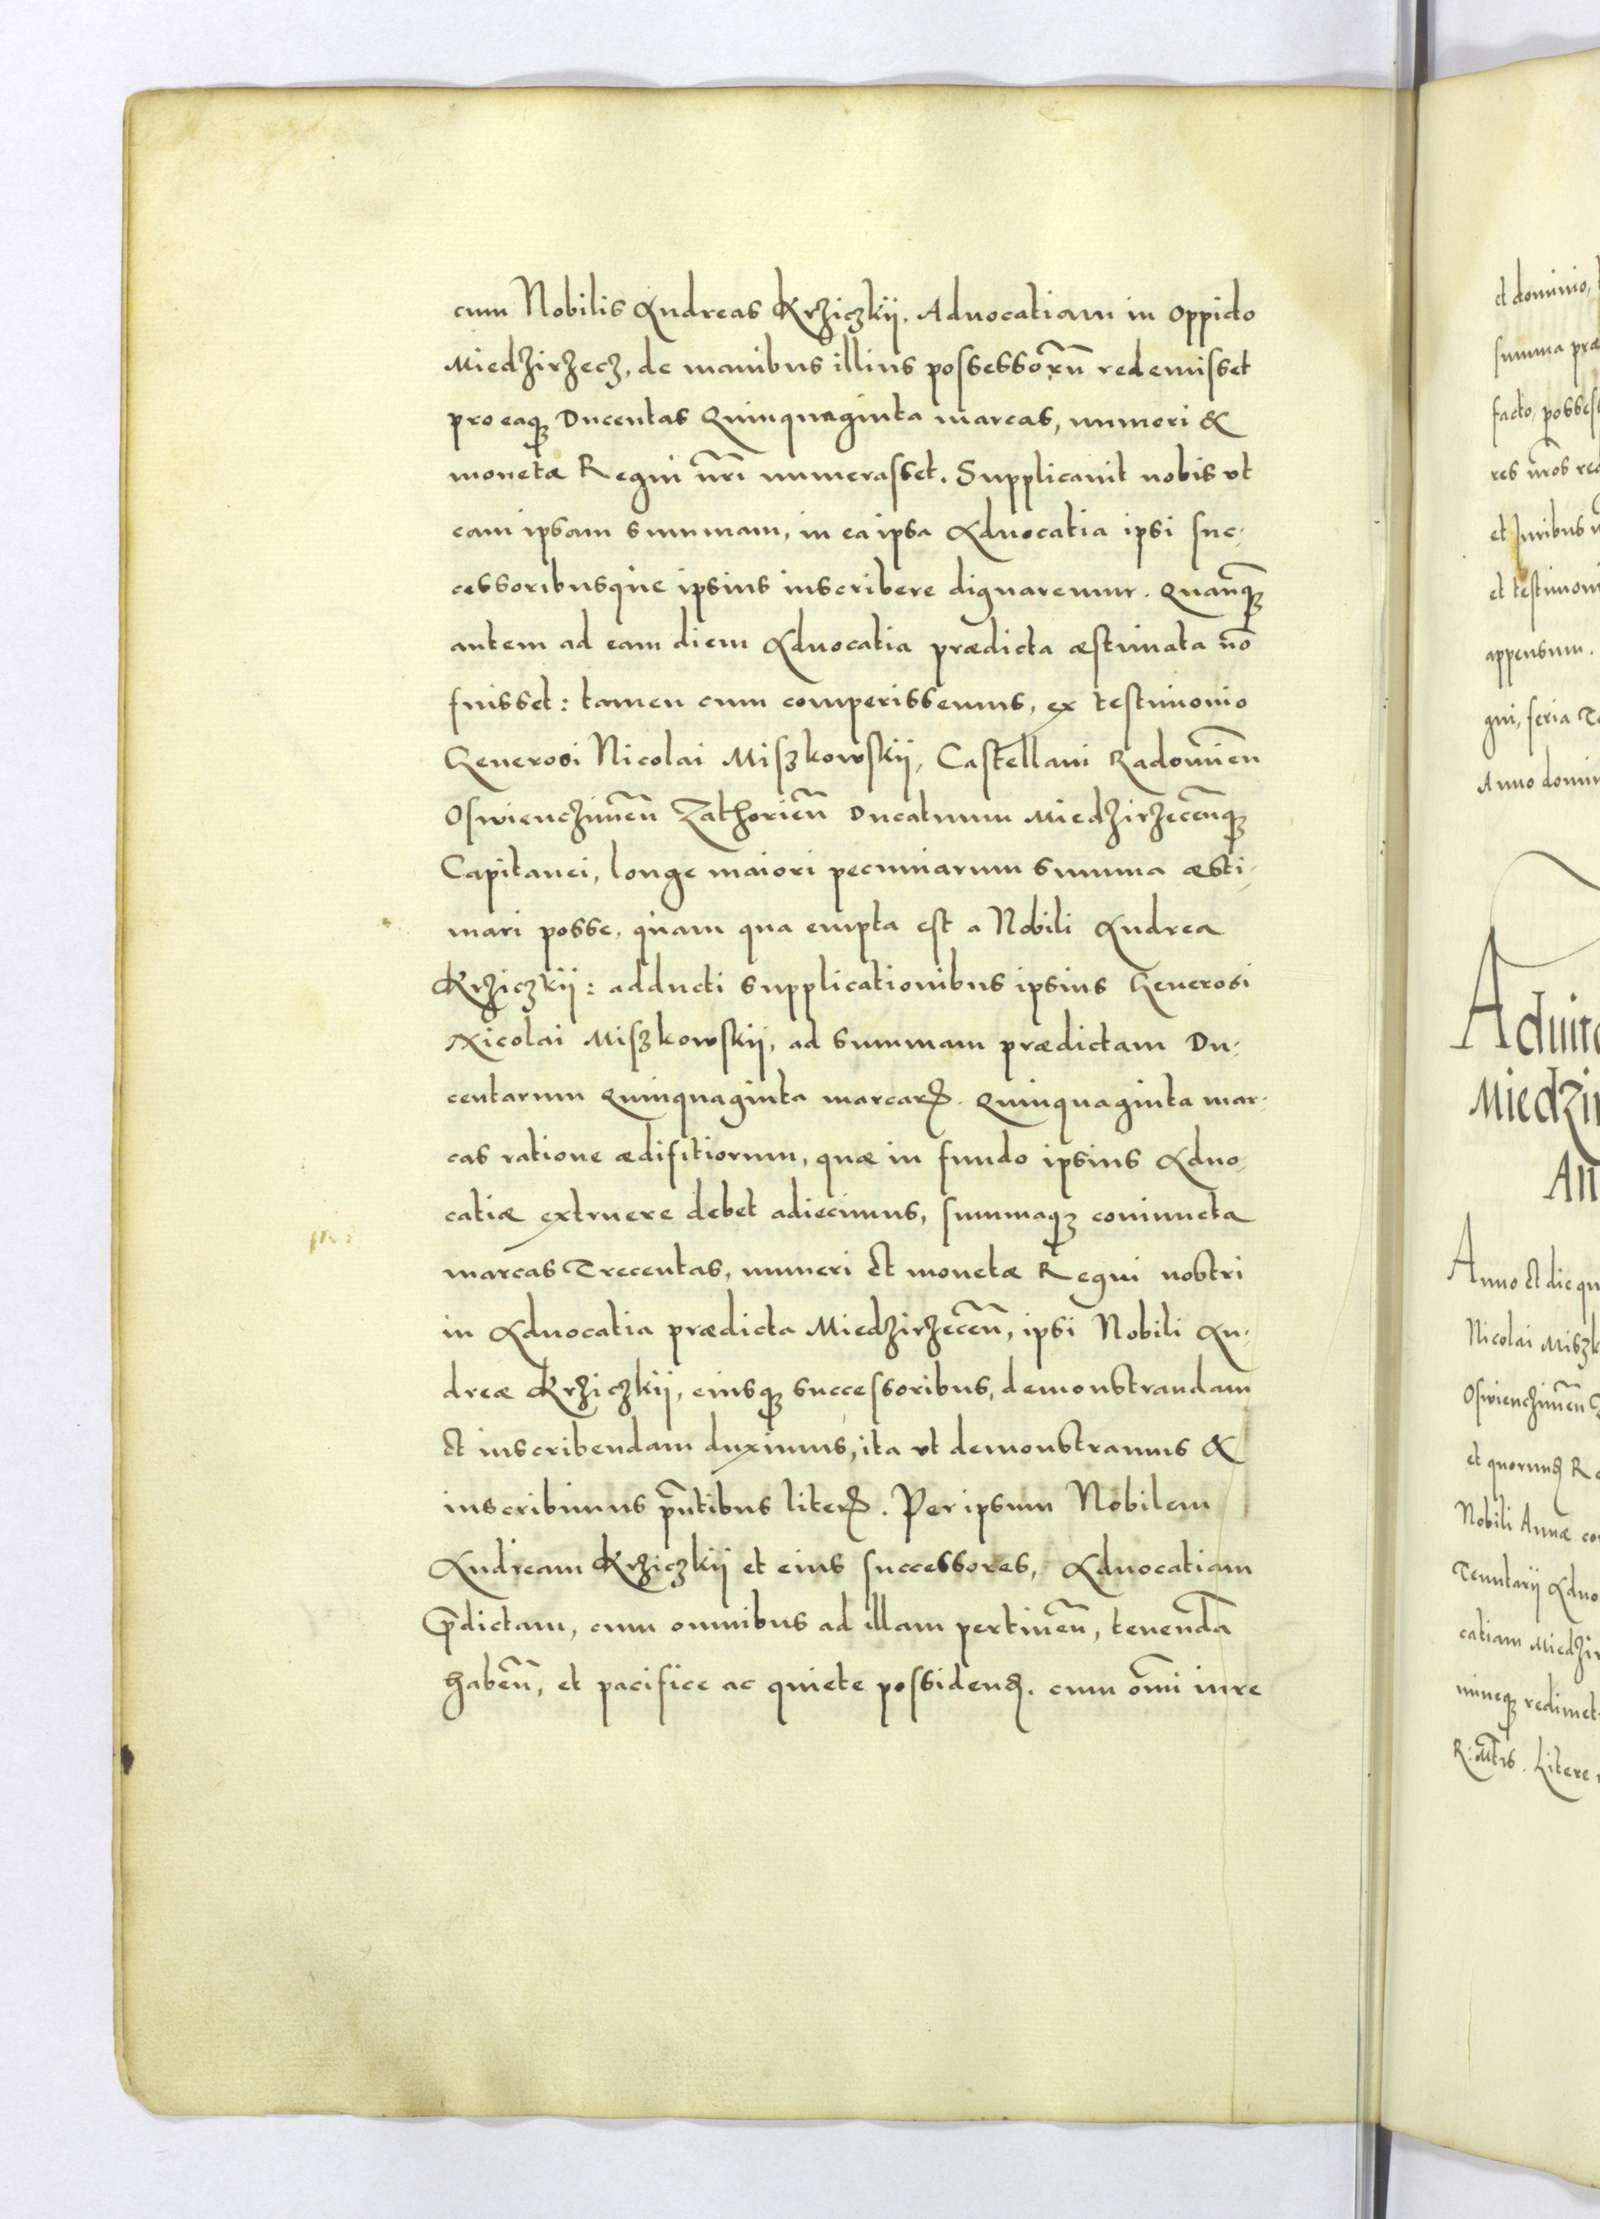 cum Nobilis Andreas Krziczkij. Aduocatiam in oppido
Miedzirzecz, de manibus illius possessorũ redemisset
pro eaqꝫ Ducentas Quinquaginta marcas, numeri &
monetæ Regni nr̃i numerasset. Supplicauit nobis vt
eam ipsam summam, in ea ipsa Aduocatia ipsi suc-
cessoribusque ipsius inscribere dignaremur. Quanqꝫ
autem ad eam diem Aduocatia prædicta æstimata nõ
fuisset: tamen cum comperissemus, ex testimonio
Generosi Nicolai Miszkowskij, Castellani Radomieñ
Oswienczimeñ Zathorieñ Ducatuum Miedzirzeceñqꝫ
Capitanei, longe maiori pecuniarum summa æsti-
mari posse, quam qua empta est a Nobili Andrea
Krziczkij: adducti supplicationibus ipsius Generosi
Nicolai Miszkowskij, ad summam prædictam Du-
centarum Quinquaginta marcarꝝ. Quinquaginta mar-
cas ratione ædifitiorum, quæ in fundo ipsius Aduo-
catiæ extruere debet adiecimus, summaqꝫ coniuncta
marcas Trecentas, numeri et monetæ Regni nostri
in Aduocatia prædicta Miedzirzeceñ, ipsi Nobili An-
dreæ Krziczkij, eiusqꝫ successoribus, demonstrandam
et inscribendam duximus, ita vt demonstramus &
inscribimus pñtibus literꝭ. Per ipsum Nobilem
Andream Krziczkij et eius successores, Aduocatiam
p̃dictam, cum omnibus ad illam pertineñ, tenendã
habeñ, et pacifice ac quiete possidenꝭ. cum õmi iure
et dominio,
summa præ
facto, posses
res nr̃os re
et Iuribus
et testimoni
appensum.
gni, feria
Anno domi
Aduit
Miedzi
An
Anno et die qu
Nicolai Miszk
Oswienczimeñ
et quorumꝭ R
Nobili Annæ co
Tenutarij Aduo
catiam Miedzi
mineqꝫ redimet
R: Mtis. Litere